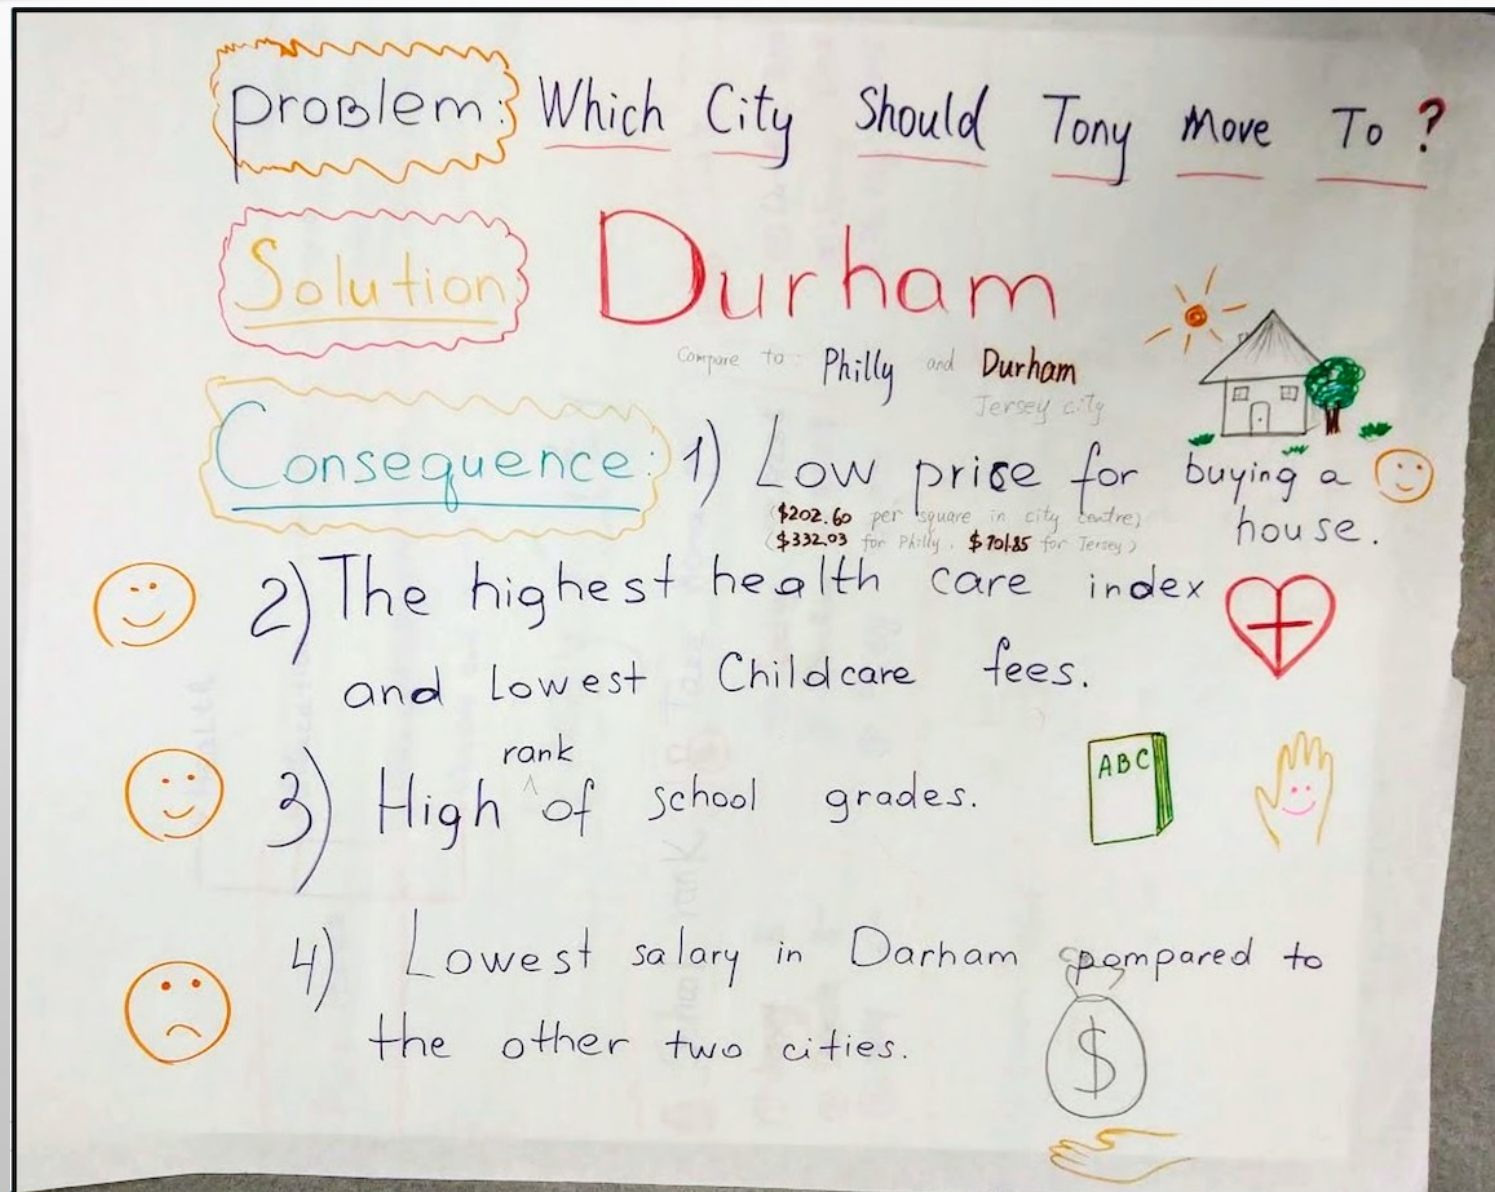 Problem: Which City Should Tony Move To ?
Solution: Durham
Compare to: Philly and Durham
Jersey city
Consequence: 1) Low price for buying a house.
($202.60 per square in city centre)
($332.03 for Philly. $701.85 for Jersey)
2) The highest health care index
and lowest Childcare fees.
rank
3) High ^ of school grades.
ABC
4) Lowest salary in Darham compared to
the other two cities.
$